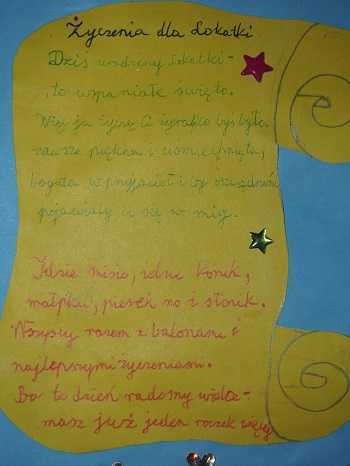 Życzenia dla Lokatki
Dziś urodziny Lokatki -
, to wspaniałe święto.
Więc ja życzę Ci żebyś była
zawsze piękna i uśmiechnięta,
bogata w przyjaciół i by
pojawiały ci się w mig.
Idzie misio, idzie konik,
małpka, piesek no i słonik.
Wszyscy razem z balonami i
najlepszymi życzeniami.
Bo to dzień radosny
masz już jeden roczek więcej